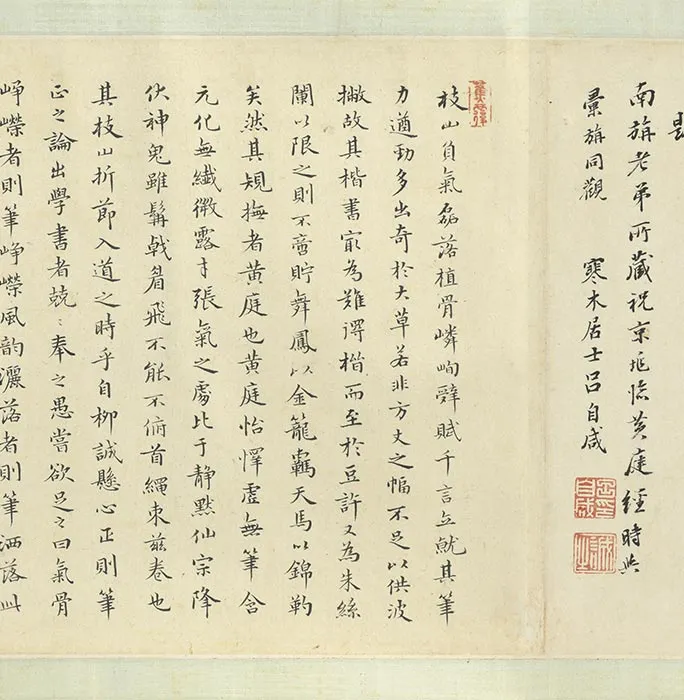 南旃老弟所藏祝京兆臨黃庭經時與
旃同觀 寒木居士呂自咸
枝山負氣磊落植骨嶙峋辭賦千言立就其筆
力遒勁多出奇於大草若非方丈之幅不足以供波
撇故其楷書冣為難得楷而至於豆許又為朱絲
闌以限之則不啻貯舞鳳以金籠羈天馬以錦靮
矣然其規撫者黃庭也黃庭怡懌虛無筆含
元化無纖微露才張氣之處比于靜默仙宗降
伏神鬼雖髯戟眉飛不能不俯首繩束茲卷也
其枝山折節入道之時乎自柳誠懸心正則筆
正之論出學書者兢〻奉之愚嘗欲足之曰氣骨
崢嶸者則筆崢嶸風韵灑落者則筆洒落此